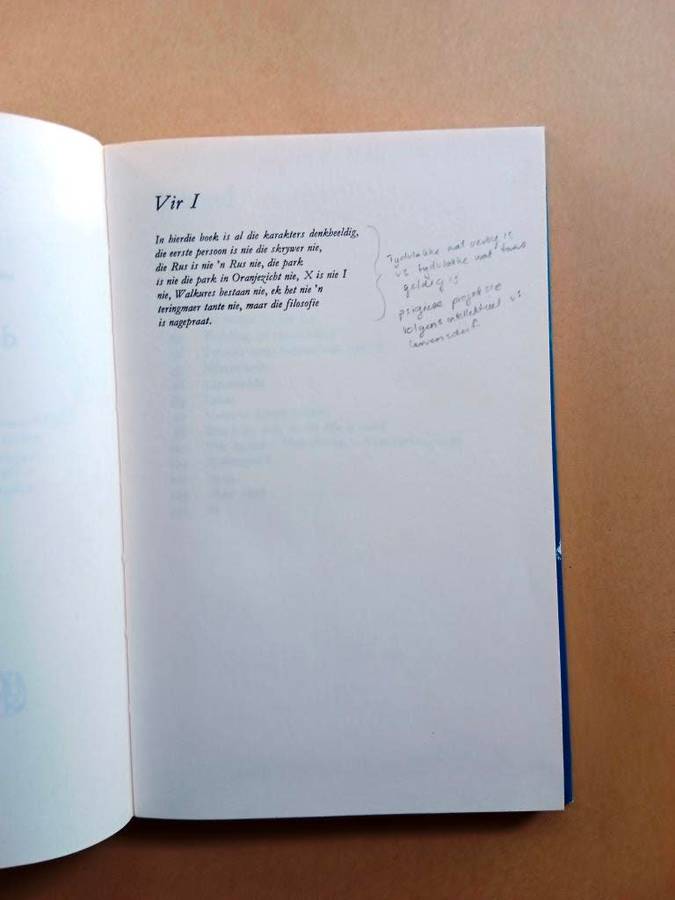 Vir I
In hierdie boek is al die karakters denkbeeldig,
die eerste persoon is nie die skrywer nie,
die Rus is nie 'n Rus nie, die park
is nie die park in Oranjezicht nie, X is nie I
nie, Walkures bestaan nie, ek het nie 'n
teringmaer tante nie, maar die filosofie
is nagepraat.
Tydvlakke wat verby is
vs tydvlakke wat
geldig is
projeksie
volgens intellektueel vs